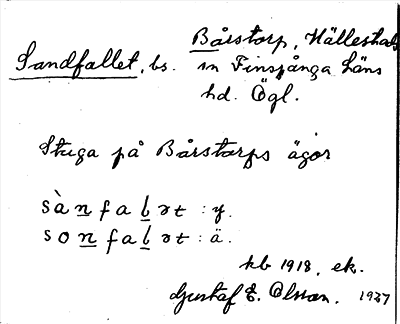 Sandfallet, bs. Bårstorp, Hällestads
sn Finspånga läns
hd. Ögl.
Stuga på Bårstorps ägor
sàn̲fal̲ət : y.
son̲fal̲ət : ä.
kb 1918, ek.
Gustaf E. Olsson. 1937